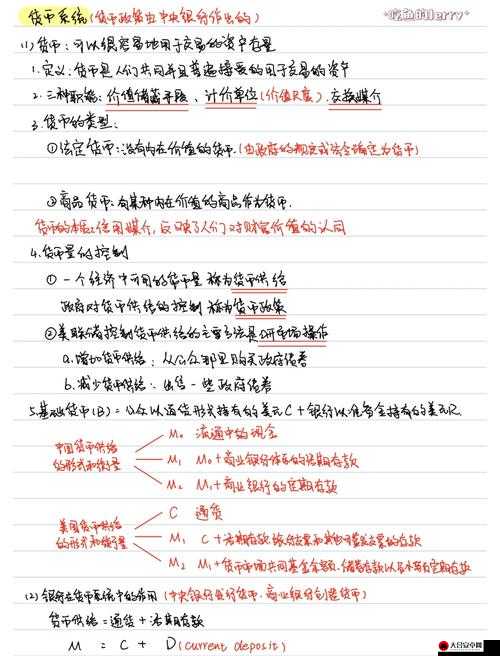 货币系统(货币政策由中央银行作出的)
吃鱼的Jerry
(1)货币:可以很容易地用于交易的资产存量
1.定义:货币是人们共同并且普遍接受的用于交易的资产
2.三种职能:价值储藏手段、计价单位(价值尺度)、交换媒介
3.货币的类型:
①法定货币:没有内在价值的货币.(由政府的规定或法令确定为货币)
②商品货币:有某种内在价值的商品作为货币.
货币的本质:信用媒介,反映了人们对财富价值的认同
4.货币量的控制
①一个经济中可用的货币量 称为货币供给
政府对货币供给的控制 称为货币政策
②美联储控制货币供给的主要方法是公开市场操作
a.增加货币供给:从公众那里购买政府债券
b.减少货币供给:出售一些政府债券
5.基础货币(B)=公众以通货形式持有的美元C+银行以准备金持有的美元R.
中国货币供给的形式和衡量
M₀ 流通中的现金
M₁ M₀+商业银行体系的活期存款
M₂ M₁+商业银行的定期存款
美国货币供给的形式和衡量
C 通货
M₁ C+活期存款、旅行支票和其他可签发支票的存款
M₂ M₁+货币市场共同基金余额、储蓄存款以及小额定期存款
(2)银行在货币系统中的作用(中央银行发行货币.商业银行创造货币)
货币供给=通货+活期存款
M = C + D(current deposit)
大公安卓网